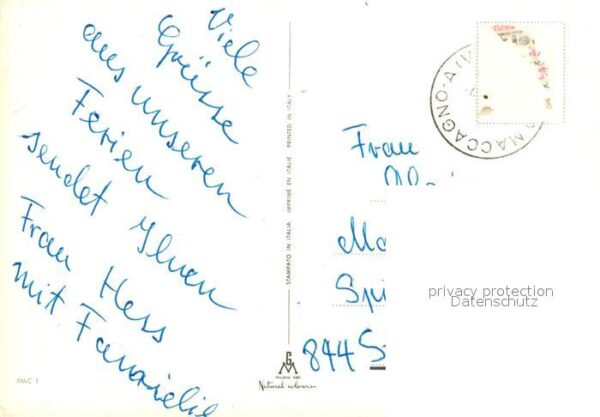 Viele
Grüsse
aus unseren
Ferien
sendet Ihnen
Frau Hess
mit Familie
MAC 1
STAMPATO IN ITALIA IMPRIMÉ EN ITALIE PRINTED IN ITALY
GM
MILANO
Natural colours
MACCAGNO - A (V
Frau
Ma
Spi
844 S
privacy protection
Datenschutz